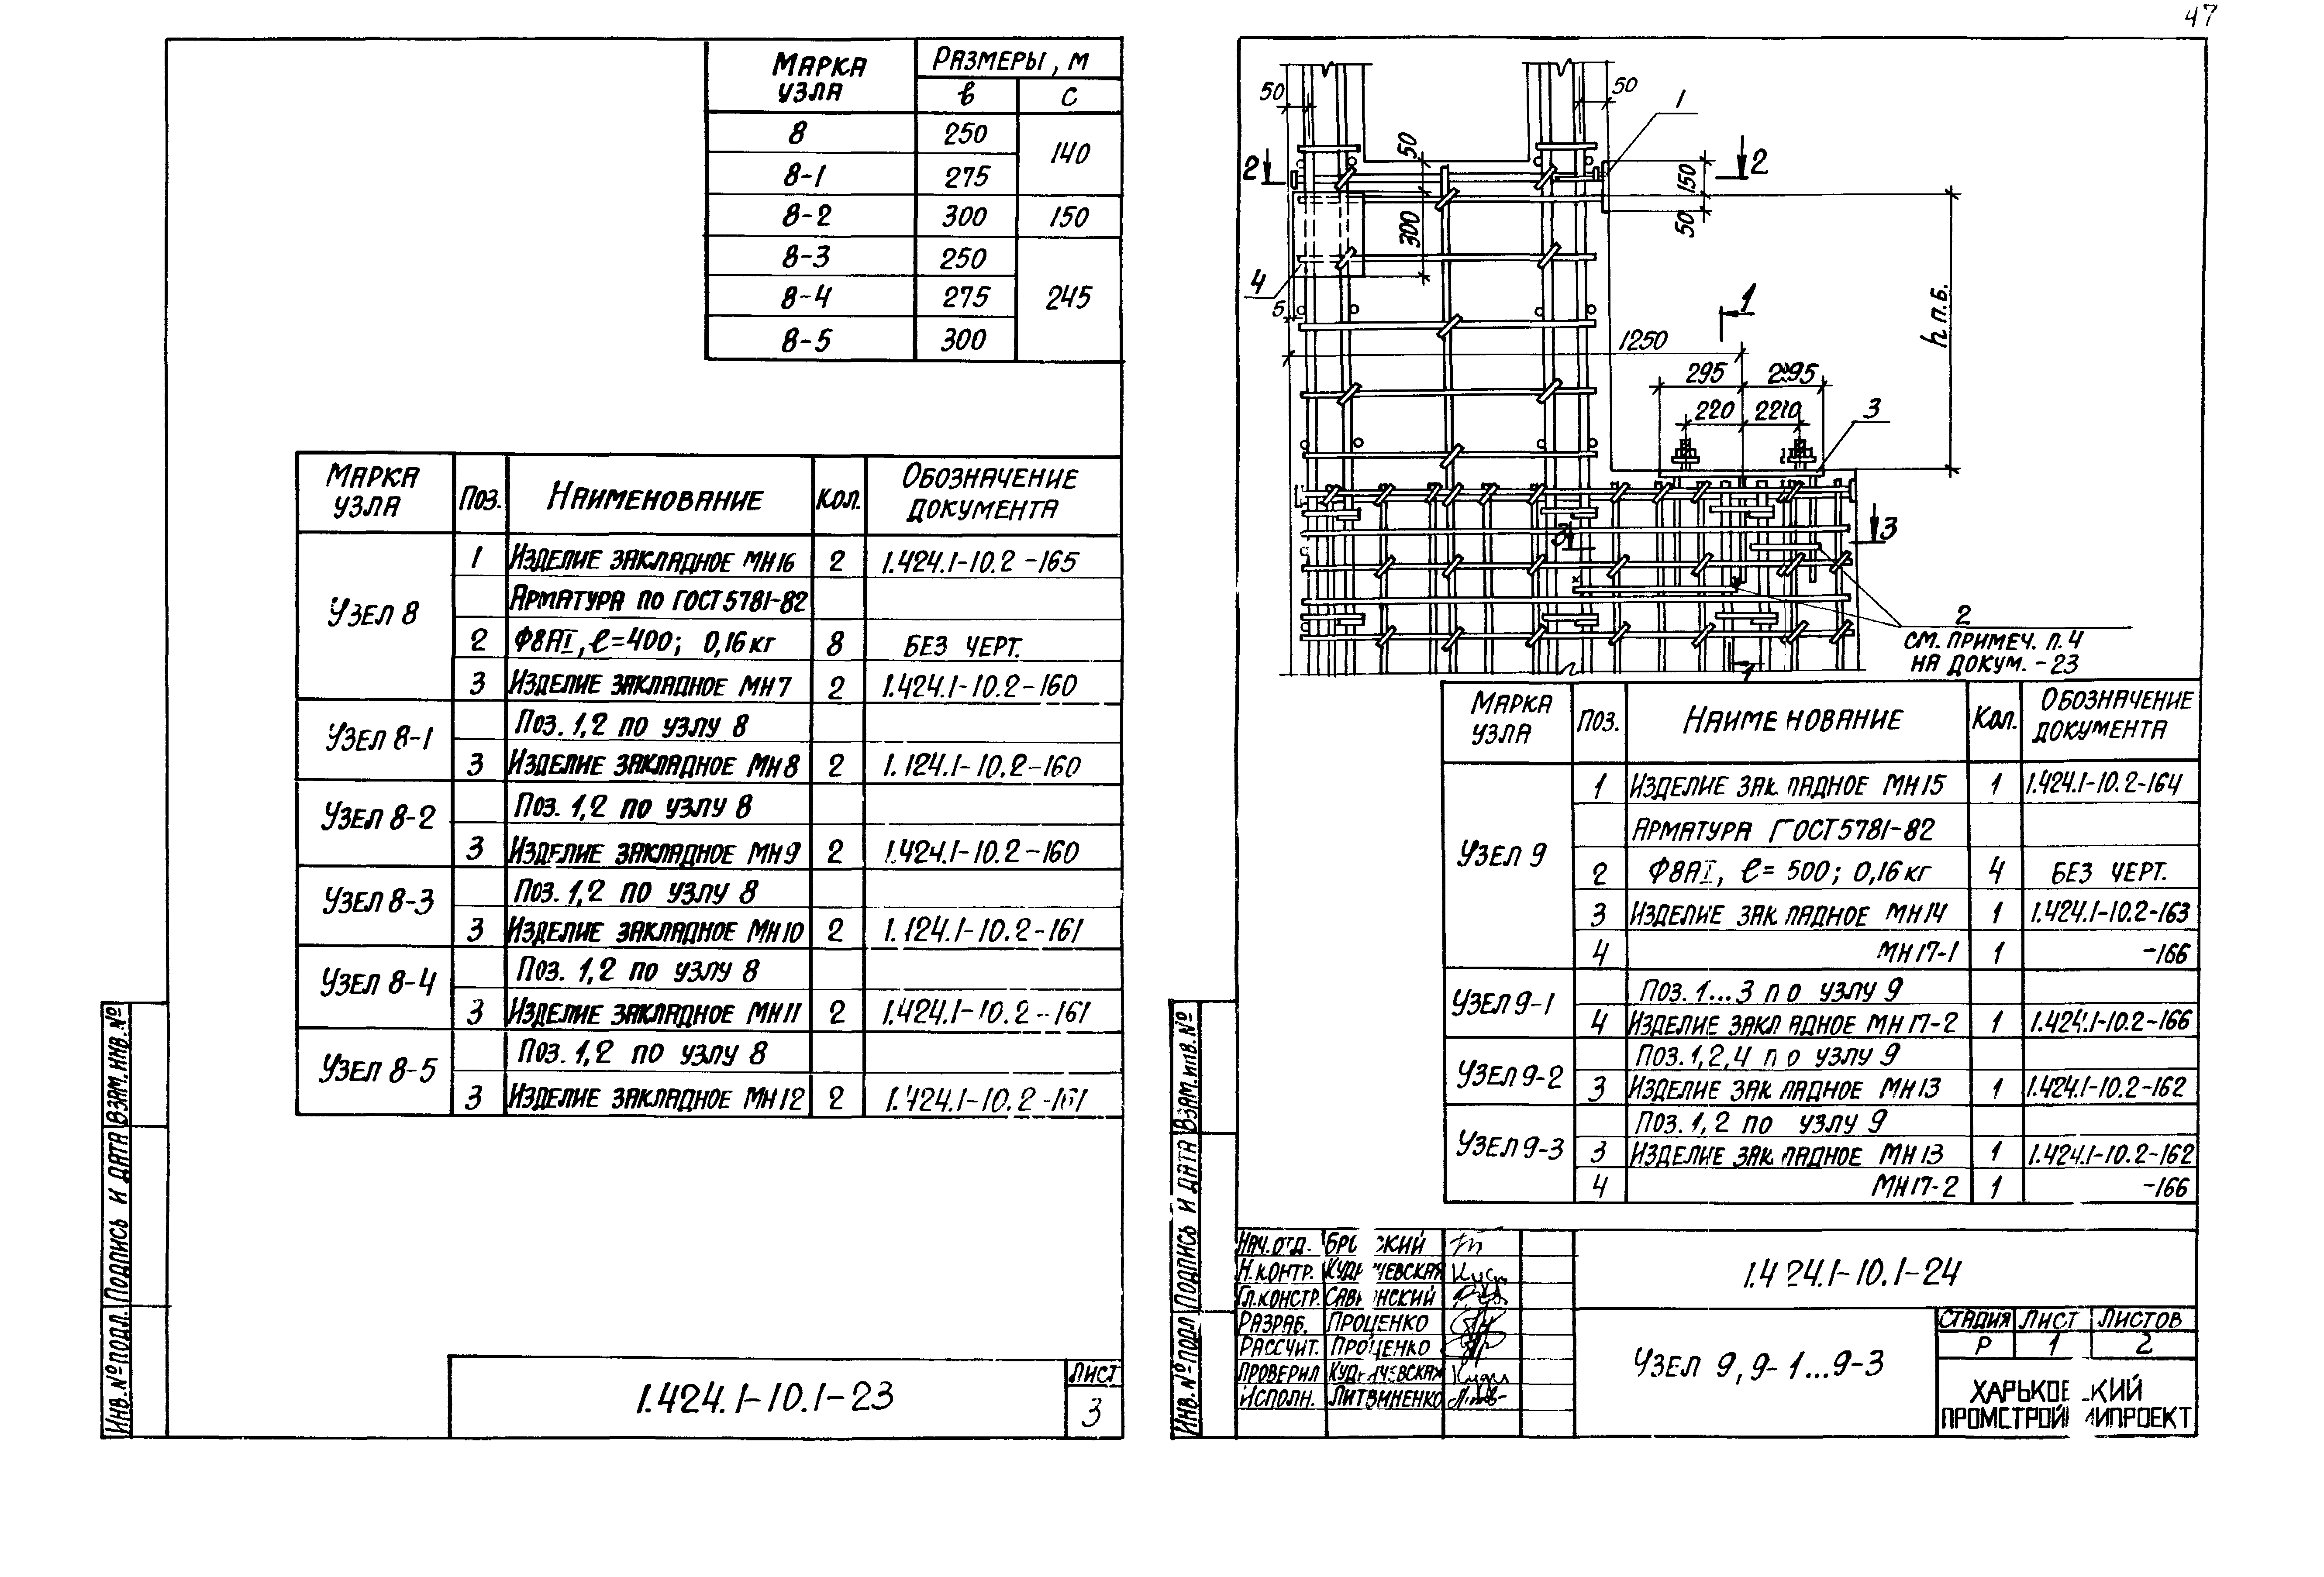 47
МАРКА УЗЛА РАЗМЕРЫ, М
в с
8 250 140
8-1 275
8-2 300 150
8-3 250 245
8-4 275
8-5 300
МАРКА УЗЛА ПОЗ. НАИМЕНОВАНИЕ КОЛ. ОБОЗНАЧЕНИЕ ДОКУМЕНТА
УЗЕЛ 8 1 ИЗДЕЛИЕ ЗАКЛАДНОЕ МН16 2 1.424.1-10.2-165
АРМАТУРА ПО ГОСТ 5781-82
2 Ф8АI, ℓ=400; 0,16 кг 8 БЕЗ ЧЕРТ.
3 ИЗДЕЛИЕ ЗАКЛАДНОЕ МН7 2 1.424.1-10.2-160
УЗЕЛ 8-1 ПОЗ. 1,2 ПО УЗЛУ 8
3 ИЗДЕЛИЕ ЗАКЛАДНОЕ МН8 2 1.424.1-10.2-160
УЗЕЛ 8-2 ПОЗ. 1,2 ПО УЗЛУ 8
3 ИЗДЕЛИЕ ЗАКЛАДНОЕ МН9 2 1.424.1-10.2-160
УЗЕЛ 8-3 ПОЗ. 1,2 ПО УЗЛУ 8
3 ИЗДЕЛИЕ ЗАКЛАДНОЕ МН10 2 1.424.1-10.2-161
УЗЕЛ 8-4 ПОЗ. 1,2 ПО УЗЛУ 8
3 ИЗДЕЛИЕ ЗАКЛАДНОЕ МН11 2 1.424.1-10.2-161
УЗЕЛ 8-5 ПОЗ. 1,2 ПО УЗЛУ 8
3 ИЗДЕЛИЕ ЗАКЛАДНОЕ МН12 2 1.424.1-10.2-161
ИНВ. № ПОДЛ. ПОДПИСЬ И ДАТА ВЗАМ. ИНВ. №
1.424.1-10.1-23
ЛИСТ
3
50 50 1
2 50 150 2
300 50
4
5 1
1250 h п.б.
295 295
220 220 3
3 3
2
СМ. ПРИМЕЧ. П. 4
НА ДОКУМ. -23
1
МАРКА УЗЛА ПОЗ. НАИМЕНОВАНИЕ КОЛ. ОБОЗНАЧЕНИЕ ДОКУМЕНТА
УЗЕЛ 9 1 ИЗДЕЛИЕ ЗАКЛАДНОЕ МН15 1 1.424.1-10.2-164
АРМАТУРА ГОСТ 5781-82
2 Ф8АI, ℓ=500; 0,16 кг 4 БЕЗ ЧЕРТ.
3 ИЗДЕЛИЕ ЗАКЛАДНОЕ МН14 1 1.424.1-10.2-163
4 МН17-1 1 -166
УЗЕЛ 9-1 ПОЗ. 1...3 ПО УЗЛУ 9
4 ИЗДЕЛИЕ ЗАКЛАДНОЕ МН17-2 1 1.424.1-10.2-166
УЗЕЛ 9-2 ПОЗ. 1,2,4 ПО УЗЛУ 9
3 ИЗДЕЛИЕ ЗАКЛАДНОЕ МН13 1 1.424.1-10.2-162
УЗЕЛ 9-3 ПОЗ. 1,2 ПО УЗЛУ 9
3 ИЗДЕЛИЕ ЗАКЛАДНОЕ МН13 1 1.424.1-10.2-162
4 МН17-2 1 -166
ИНВ. № ПОДЛ. ПОДПИСЬ И ДАТА ВЗАМ. ИНВ. №
НАЧ. ОТД.
Н. КОНТР.
ГЛ. КОНСТР.
РАЗРАБ. ПРОЦЕНКО
РАССЧИТ. ПРОЦЕНКО
ПРОВЕРИЛ
ИСПОЛН. ЛИТВИНЕНКО
1.424.1-10.1-24
УЗЕЛ 9, 9-1...9-3
СТАДИЯ ЛИСТ ЛИСТОВ
Р 1 2
ХАРЬКОВСКИЙ
ПРОМСТРОЙНИИПРОЕКТ